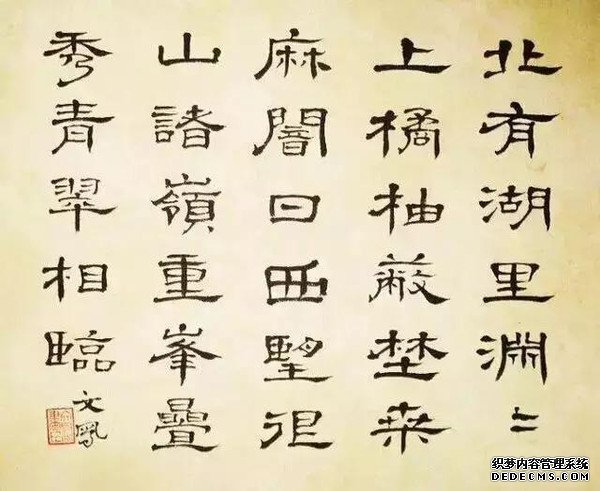 北有湖里淵二
上橘柚蔽埜桒
麻闇日西望很
山諸嶺重峯疊
秀青翠相臨
织梦内容管理系统
DEDECMS.COM